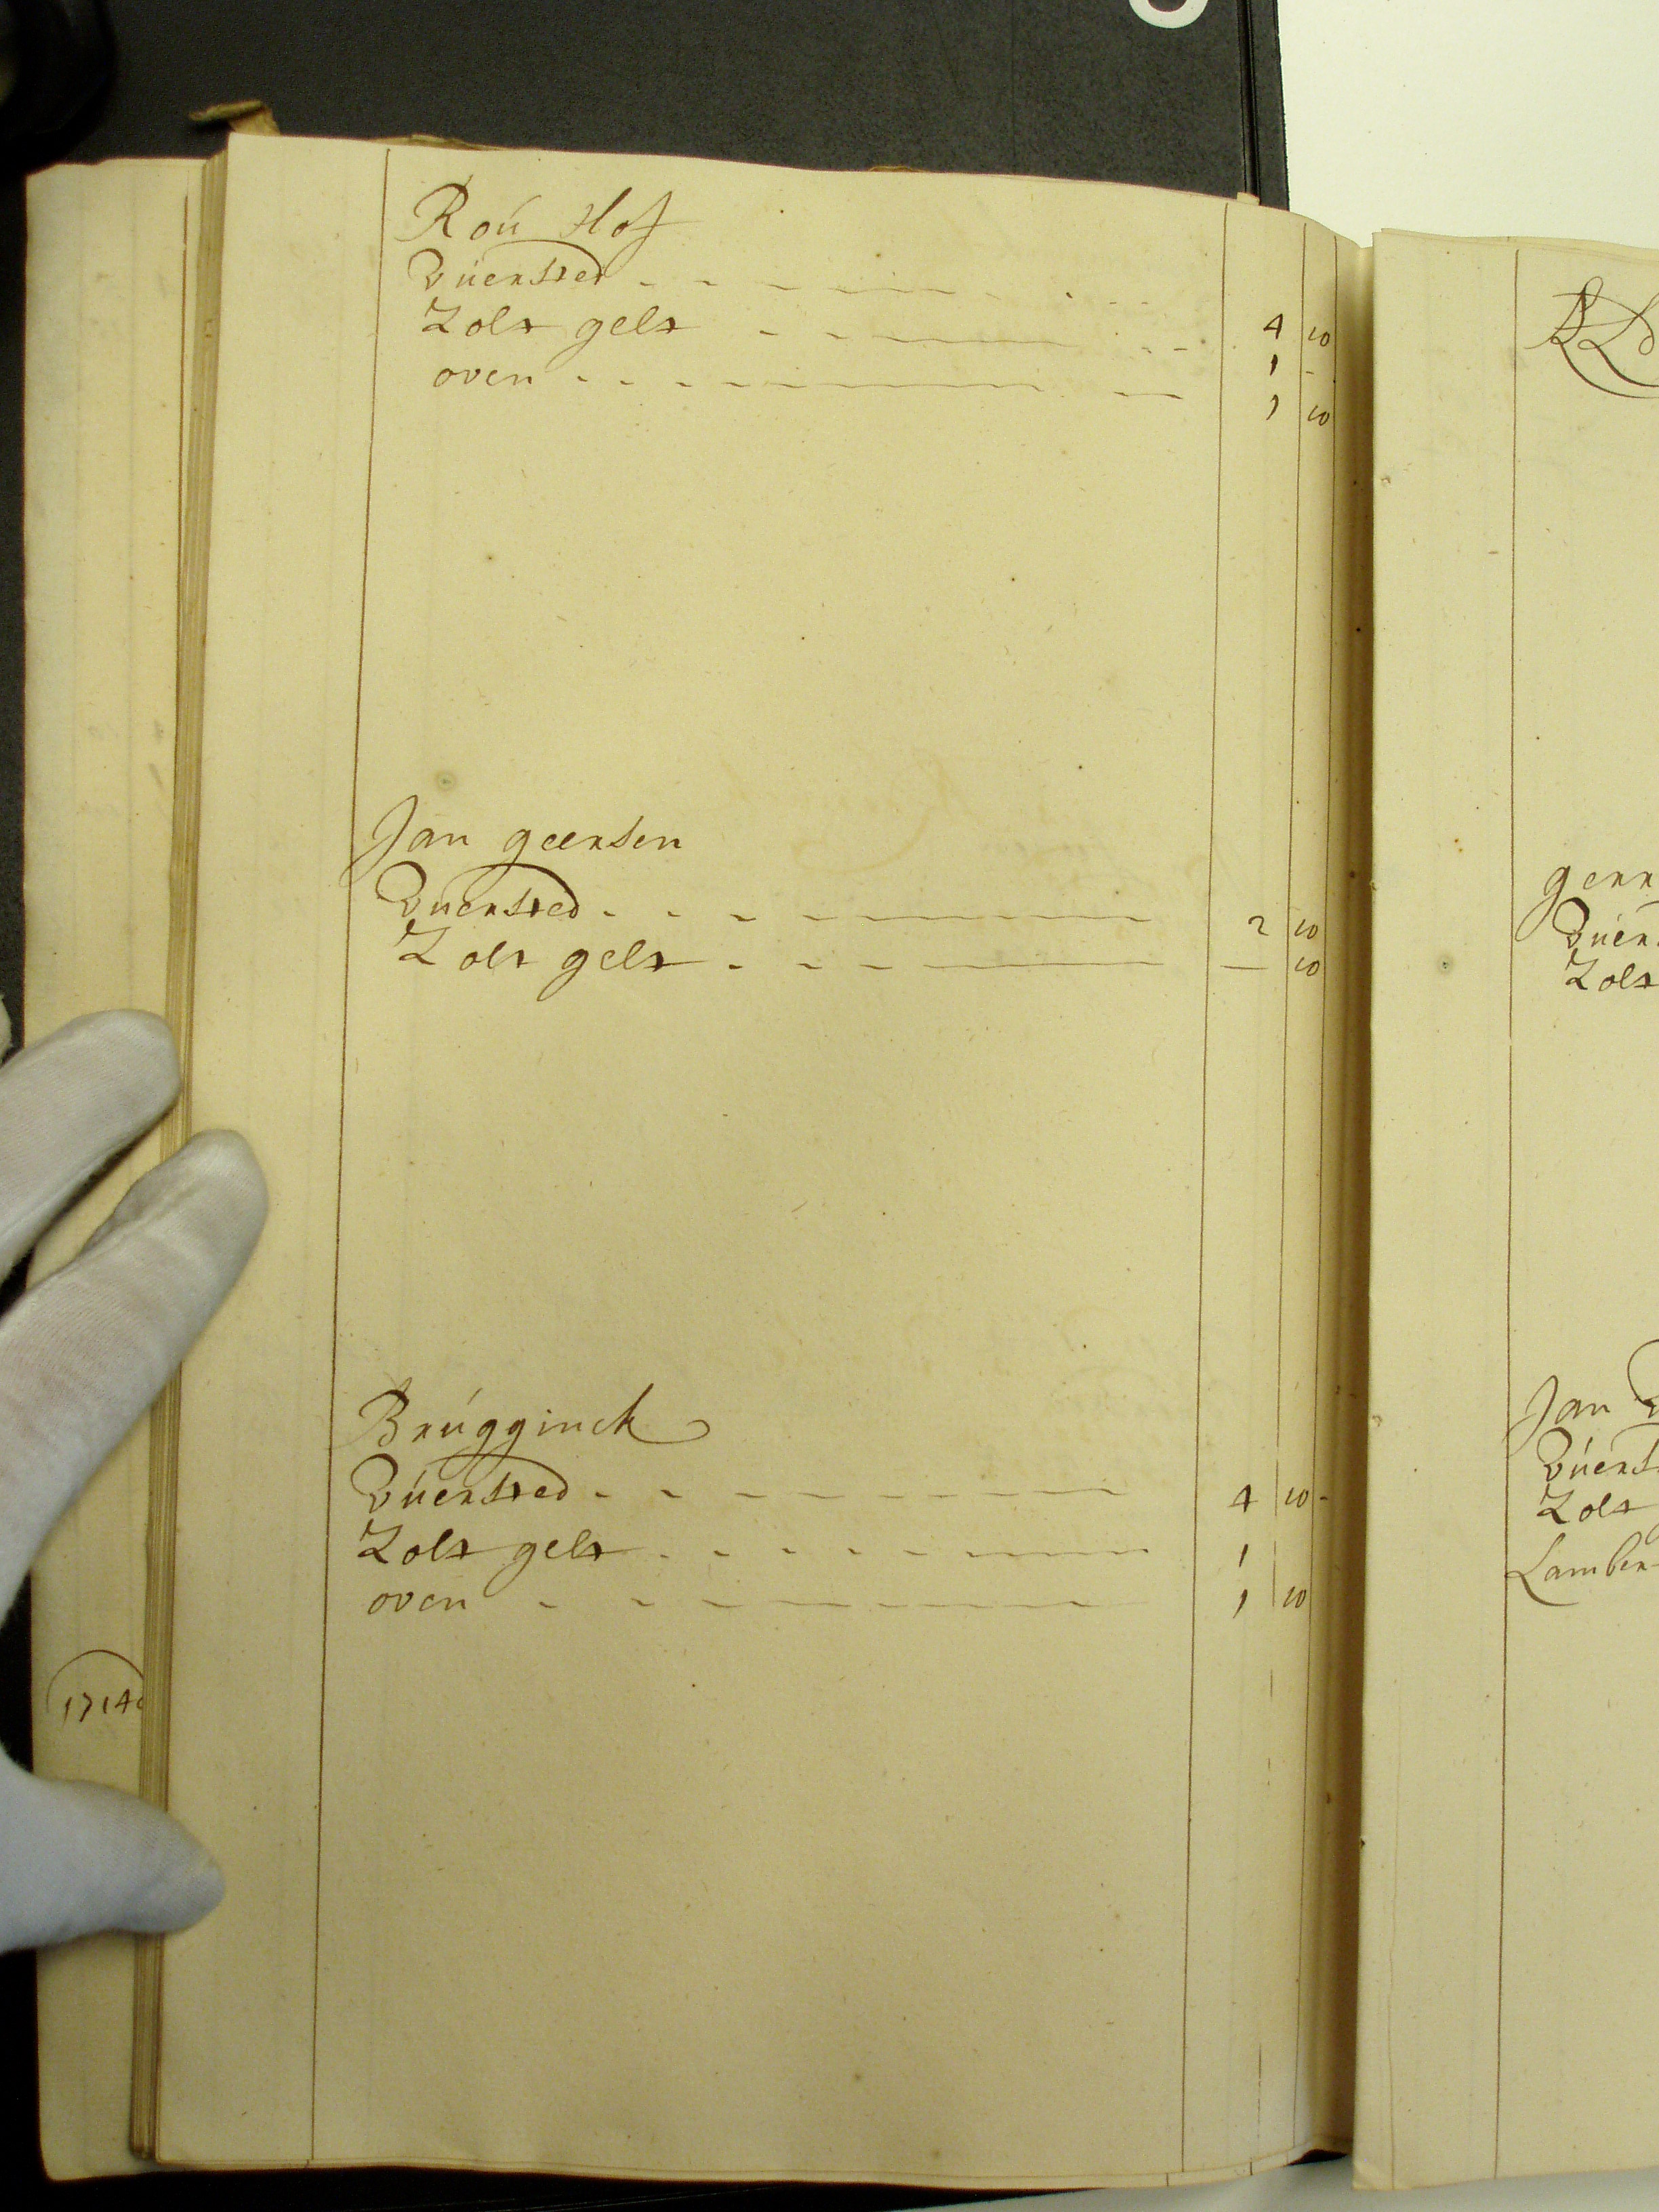 Roú Hof
Vúersted
Zolt gelt 4 10
oven 1 -
1 10
Jan geersen
Vuersted 2 10
Zolt gelt — 10
Brúgginck
Vúersted 4 10 -
Zolt gelt 1
oven 1 10
1714
gerr
Vúer
Zolt
Jan
Vúerst
Zolt
Lamber